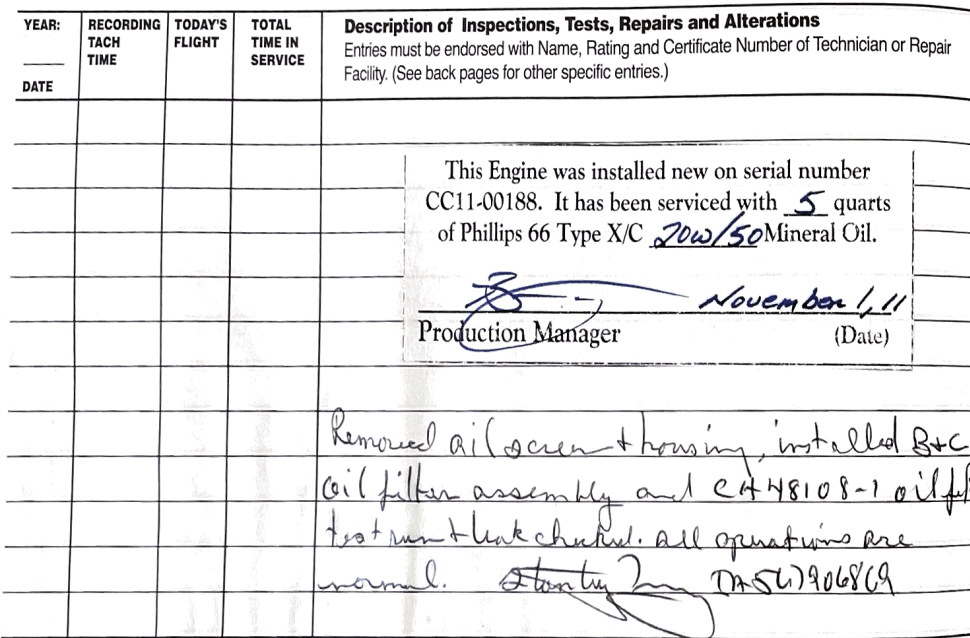 YEAR:
DATE
RECORDING
TACH
TIME
TODAY'S
FLIGHT
TOTAL
TIME IN
SERVICE
Description of Inspections, Tests, Repairs and Alterations
Entries must be endorsed with Name, Rating and Certificate Number of Technician or Repair
Facility. (See back pages for other specific entries.)
This Engine was installed new on serial number
CC11-00188. It has been serviced with 5 quarts
of Phillips 66 Type X/C 20w/50 Mineral Oil.
November 1, 11
Production Manager (Date)
Removed oil screen + housing, installed B+C
oil filter assembly and CH48108-1 oil fil
test run + leak checked. All operations are
normal. Stanley